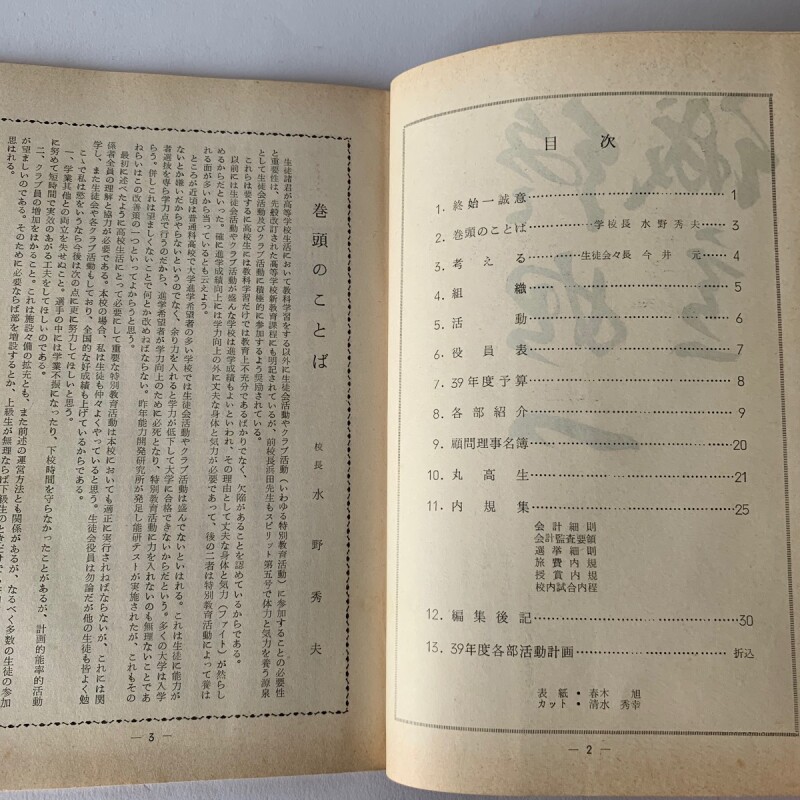 目次
1. 終始一誠意 1
2. 巻頭のことば 学校長 水野秀夫 3
3. 考える 生徒会々長 今井元 4
4. 組織 5
5. 活動 6
6. 役員表 7
7. 39年度予算 8
8. 各部紹介 9
9. 顧問理事名簿 20
10. 丸高生 21
11. 内規集 25
会計細則
会計監査要領
選挙細則
旅費内規
授賞内規
校内試合内程
12. 編集後記 30
13. 39年度各部活動計画 折込
表紙・春木 旭
カット・清水 秀幸
— 2 —
巻頭のことば
校長 水野秀夫
生徒諸君が高等学校生活において教科学習をする以外に生徒会活動やクラブ活動(いわゆる特別教育活動)に参加することの必要性
と重要性は、先般改訂された高等学校新教育課程にも明記されているが、前校長浜田先生もスピリット第五号で体力と気力を養う源泉
として生徒会活動及びクラブ活動に積極的に参加するよう奨励されている。
これらは要するに高校生には教科学習だけでは教育上不充分であるばかりでなく、欠陥があることを認めているからである。
以前には生徒会活動やクラブ活動が盛んな学校は進学成績もよいといわれ、その理由として丈夫な身体と気力(ファイト)が然らし
めるからだといった。確に進学成績向上には学力向上の外に丈夫な身体と気力が必要であって、後の二者は特別教育活動によって養は
れる面が多いから当っているとも云えよう。
ところが近頃は普通科高校で大学進学希望者の多い学校では生徒会活動やクラブ活動は盛んでないといはれる。これは生徒に能力が
ないとか嫌いだからやらないというのでなく、余り力を入れると学力が低下して大学に合格できないからだという。多くの大学は入学
者選抜を専ら学力点で行うのだから、進学希望者が学力向上のために必死となり、特別教育活動に力を入れないのも無理ないことであ
らう。併しこれは望ましくないことで何とか改めねばならない。昨年能力開発研究所が発足し能研テストが実施されたが、これもその
ねらいはこの改善策の一つといってよからうと思う。
最初に述べたように高校生活にとって必要にして重要な特別教育活動は本校においても適正に実行されねばならないが、これには関
係者全員の理解と協力が必要である。本校の場合、私は生徒も仲々よくやっていると思う。生徒会役員は勿論だが他の生徒も皆よく勉
学し、また生徒会や各クラブ活動もしており、全国的な好成績も上げているからである。
こゝで私は慾をいうなら今後は次の点に更に努力してほしいと思う。
一、学業其他との両立を失せぬこと。選手の中には学業不振になったり、下校時間を守らなかったことがあるが、計画的能率的活動
に努めて短時間で実効のあがる工夫をしてほしいのである。
二、クラブ員の増加をはかること。これは施設々備の拡充とも、また前述の運営方法とも関係があるが、なるべく多数の生徒の参加
が望ましいのである。そのために必要ならば部を増設するとか、上級生が無理ならば下級生のときだけで
思はれる。
— 3 —